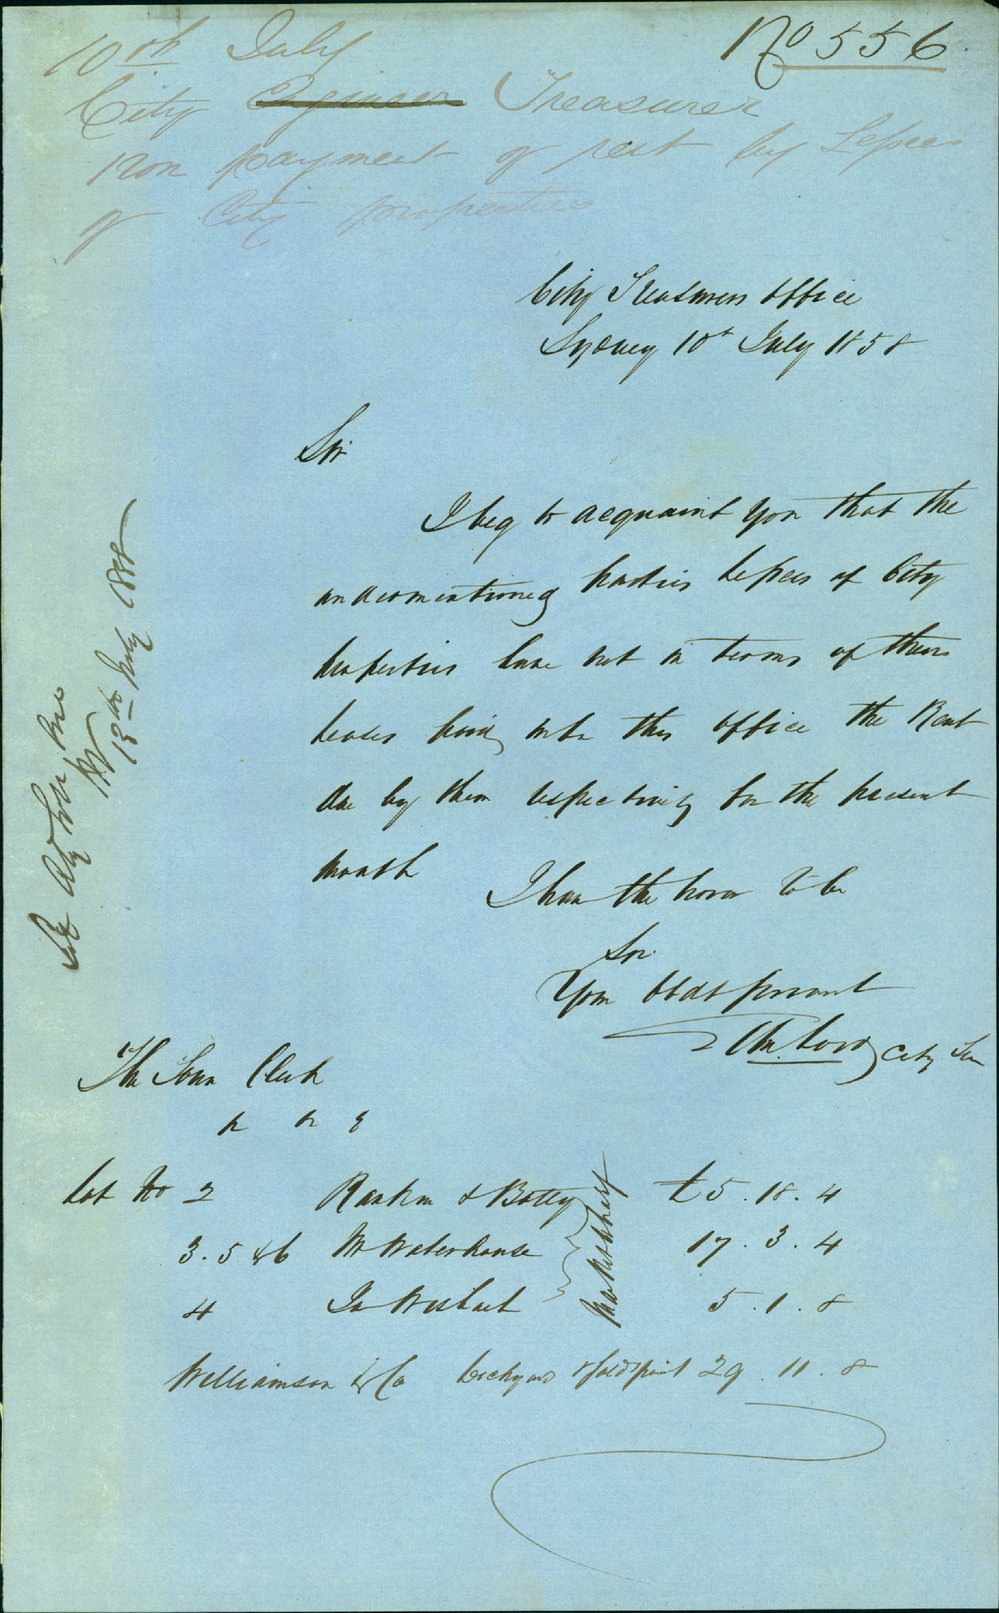 No 556
10th July
City Engineer Treasurer
Non payment of rent by Lessees
of City properties
City Treasurers Office
Sydney 10t July 1858
Sir
I beg to acquaint You that the
undermentioned parties Lessees of City
properties have not in terms of their
Leases paid into this Office the Rent
due by them respectively for the present
month
I have the honor to be
Sir
Your Obdt Servant
City Trea
The Town Clerk
Lot No 2 Rankin & Botty £5.18.4
3.5 & 6 Mr Waterhouse 17.3.4
4 Ja Wishart 5.1.8
Market Wharf
Williamson & Co 29.11.8
13th July 1858